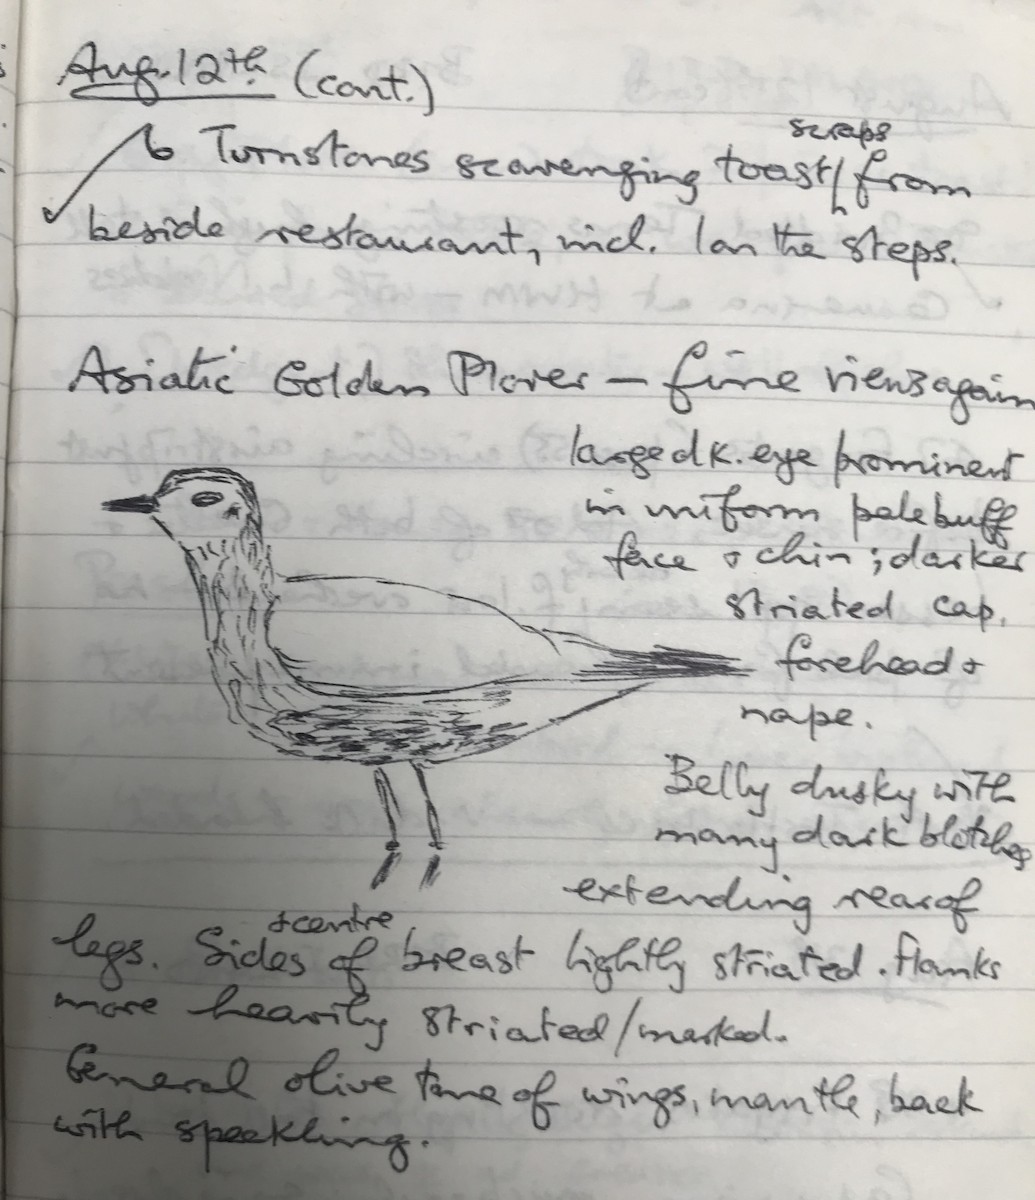 Aug. 12th (cont.)
scraps
6 Turnstones scavenging toast/from
beside restaurant, incl. 1 on the steps.
Asiatic Golden Plover – fine views again
large dk. eye prominent
in uniform pale buff
face + chin; darker
striated cap,
forehead +
nape.
Belly dusky with
many dark blotches
extending rear of
+ centre
legs. Sides of breast lightly striated. Flanks
more heavily striated/marked.
General olive tone of wings, mantle, back
with speckling.